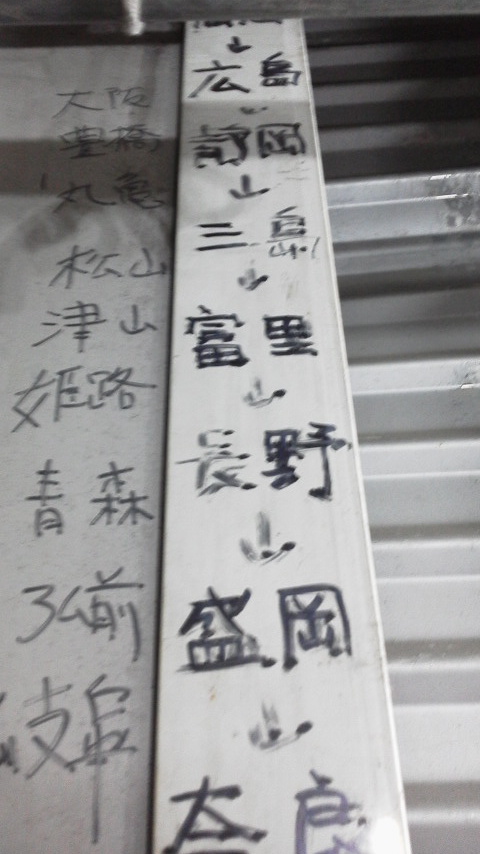 大阪
豊橋
丸亀
松山
津山
姫路
青森
弘前
岐阜
広島
↓
静岡
↓
三島
↓
富里
↓
長野
↓
盛岡
↓
奈良